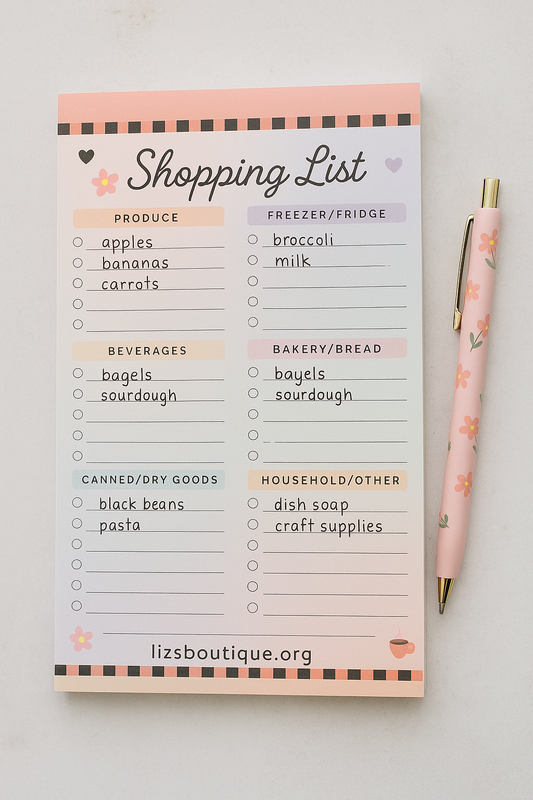 Shopping List
PRODUCE
apples
bananas
carrots
FREEZER/FRIDGE
broccoli
milk
BEVERAGES
bagels
sourdough
BAKERY/BREAD
bayels
sourdough
CANNED/DRY GOODS
black beans
pasta
HOUSEHOLD/OTHER
dish soap
craft supplies
lizsboutique.org